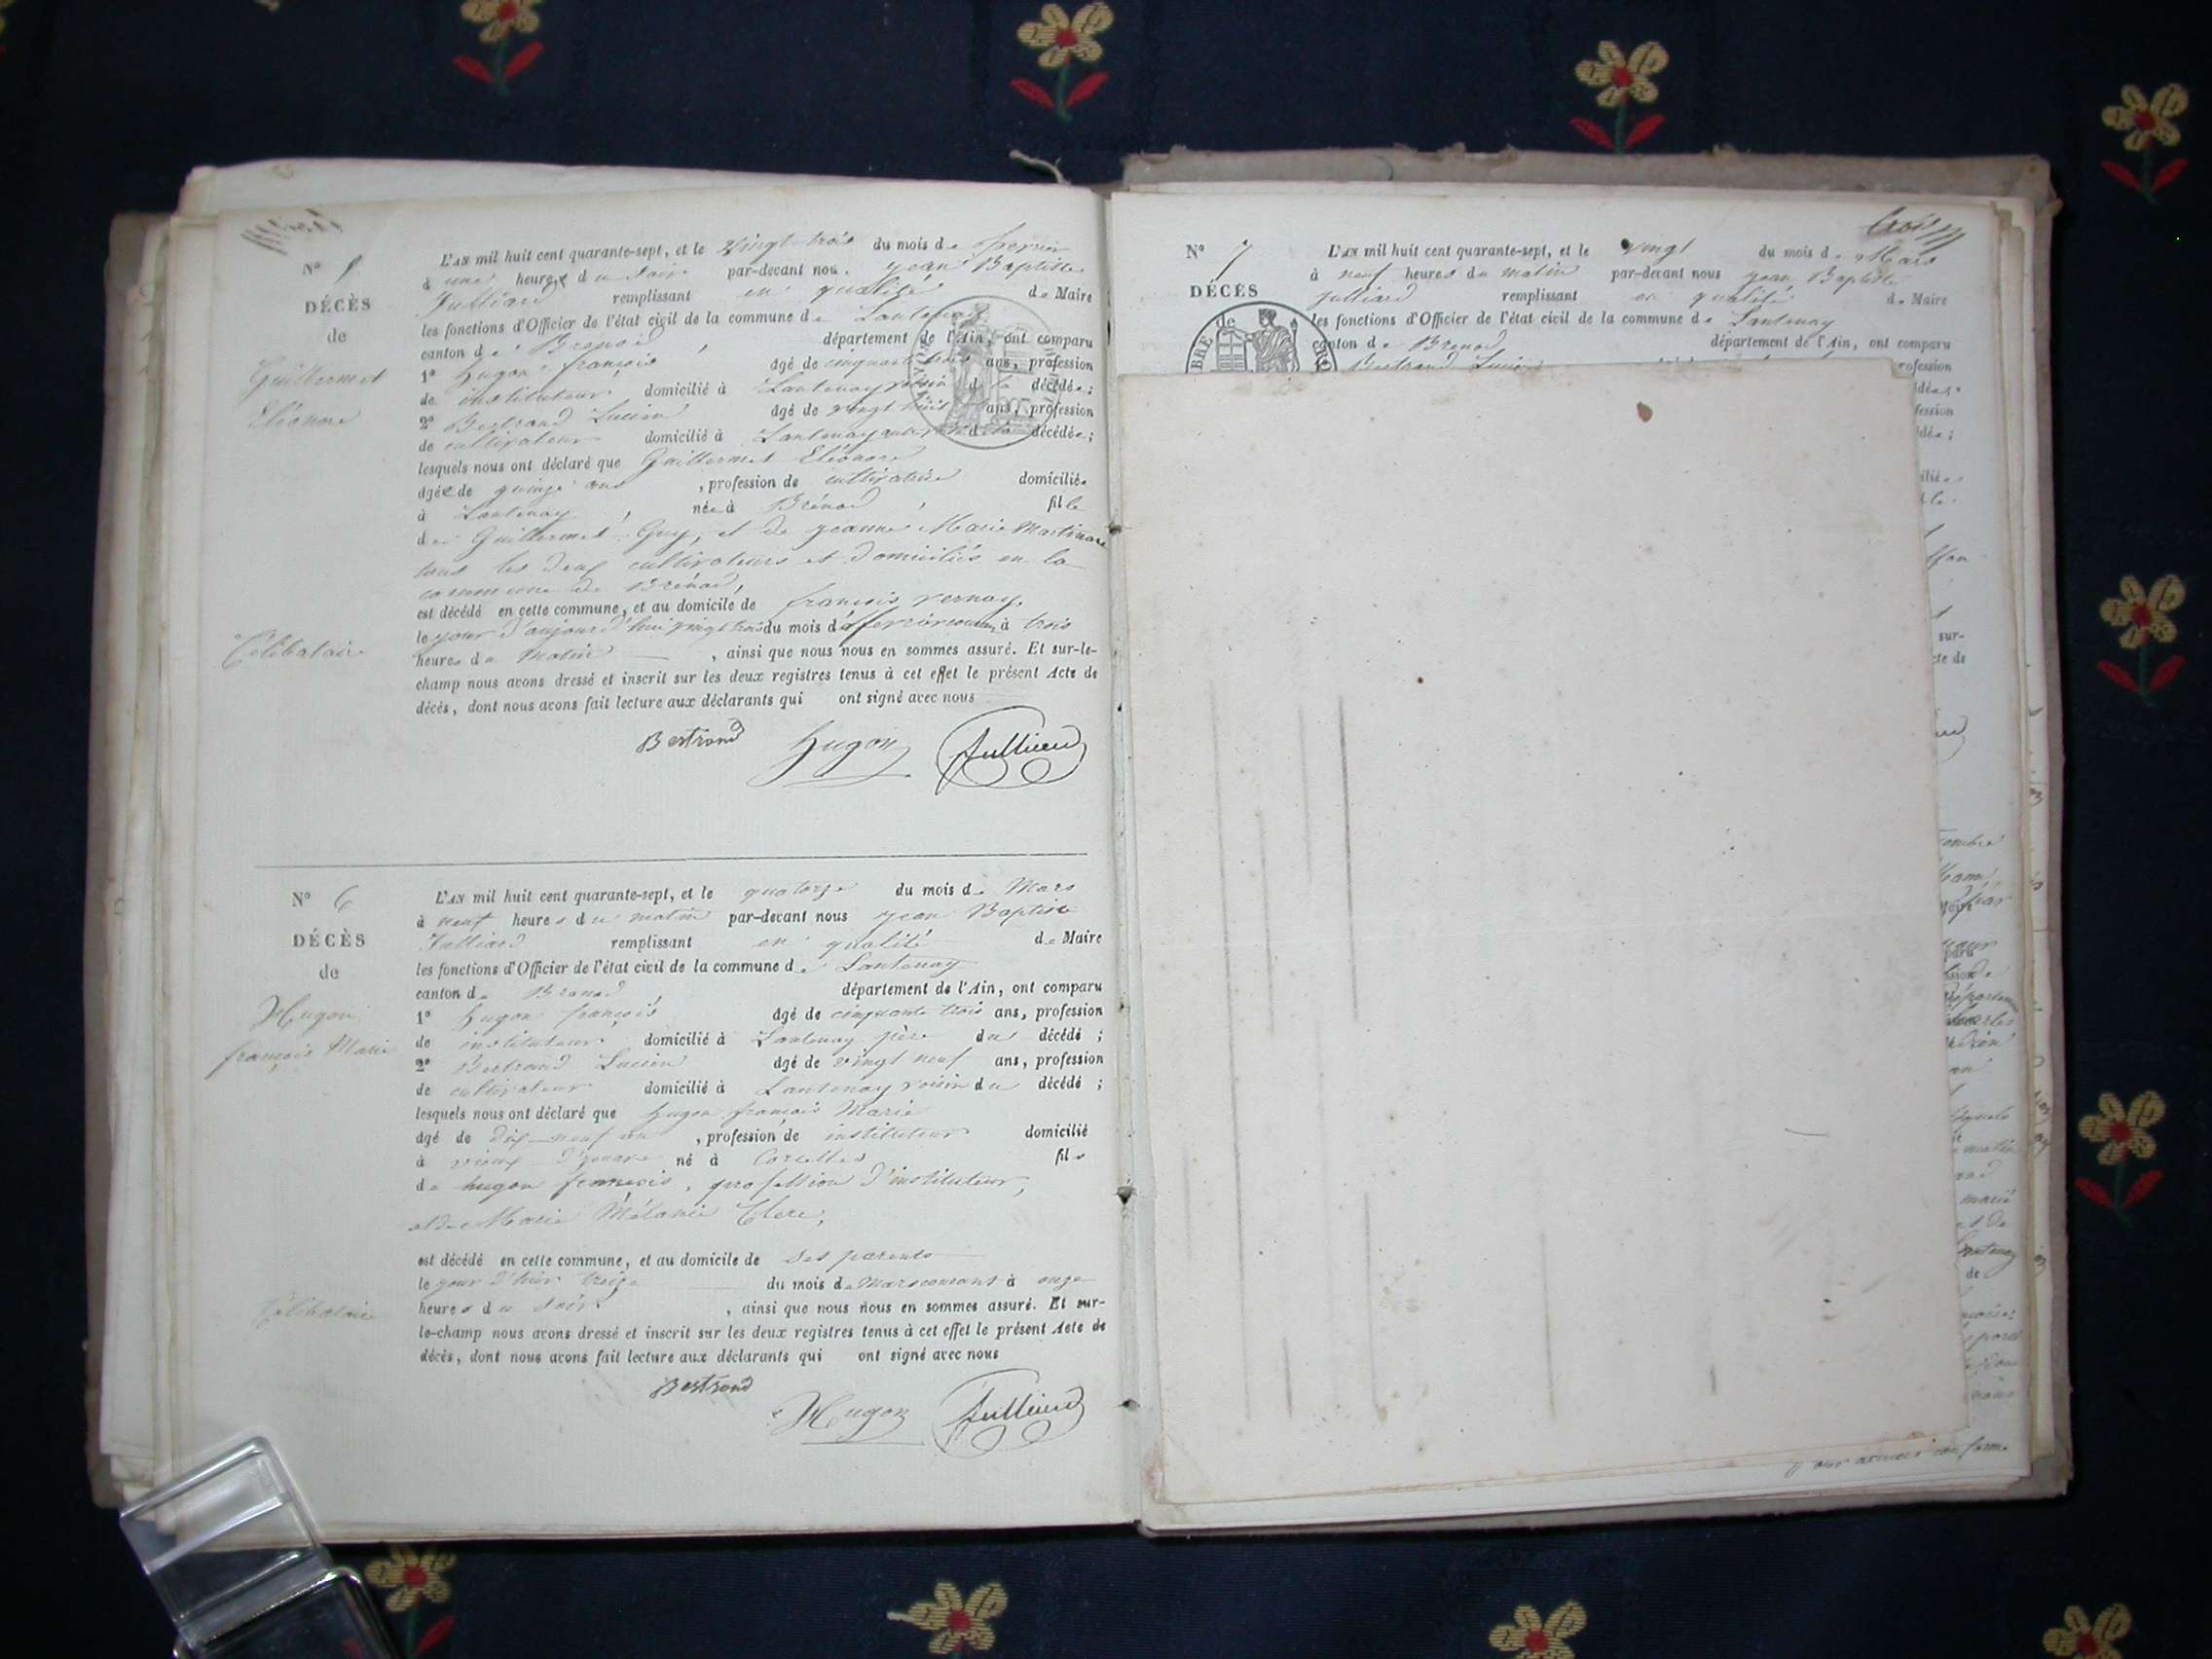 N° 5
DÉCÈS
de
Guillermet
Eléonore
Célibataire
L'AN mil huit cent quarante-sept, et le vingt-trois du mois de février
à une heure du soir par-devant nous jean Baptiste
Julliard remplissant en qualité de Maire
les fonctions d'Officier de l'état civil de la commune de Lantenay
canton de Brenod, département de l'Ain, ont comparu
1° hugon françois âgé de cinquante trois ans, profession
de instituteur domicilié à Lantenay voisin de la décédée;
2° Bertrand Lucien âgé de vingt huit ans, profession
de cultivateur domicilié à Lantenay de la décédée;
lesquels nous ont déclaré que Guillermet Eléonore
âgée de quinze ans, profession de cultivatrice domiciliée
à Lantenay, née à Brénod, fille
de Guillermet Guy, et de jeanne Marie Martinand
tous les deux cultivateurs et domiciliés en la
commune de Brénod,
est décédé en cette commune, et au domicile de françois vernay,
le jour d'aujourd'hui vingt trois du mois de février courant à trois
heures du matin, ainsi que nous nous en sommes assuré. Et sur-le-
champ nous avons dressé et inscrit sur les deux registres tenus à cet effet le présent Acte de
décès, dont nous avons fait lecture aux déclarants qui ont signé avec nous
Bertrand Hugon Julliard
N° 6
DÉCÈS
de
Hugon
françois Marie
Célibataire
L'AN mil huit cent quarante-sept, et le quatorze du mois de Mars
à neuf heures du matin par-devant nous jean Baptiste
Julliard remplissant en qualité de Maire
les fonctions d'Officier de l'état civil de la commune de Lantenay
canton de Brenod, département de l'Ain, ont comparu
1° hugon françois âgé de cinquante trois ans, profession
de instituteur domicilié à Lantenay père du décédé;
2° Bertrand Lucien âgé de vingt neuf ans, profession
de cultivateur domicilié à Lantenay voisin du décédé;
lesquels nous ont déclaré que hugon françois Marie
âgé de dix-neuf ans, profession de instituteur domicilié
à vieux d'izenave né à Corcelles fils
de hugon françois, profession d'instituteur,
et de Marie Mélanie Clerc,
est décédé en cette commune, et au domicile de ses parents
le jour d'hier treize du mois de Mars courant à onze
heures du soir, ainsi que nous nous en sommes assuré. Et sur-
le-champ nous avons dressé et inscrit sur les deux registres tenus à cet effet le présent Acte de
décès, dont nous avons fait lecture aux déclarants qui ont signé avec nous
Bertrand Hugon Julliard
trois
N° 7
DÉCÈS
de
L'AN mil huit cent quarante-sept, et le vingt du mois de Mars
à neuf heures du matin par-devant nous jean Baptiste
Julliard remplissant en qualité de Maire
les fonctions d'Officier de l'état civil de la commune de Lantenay
canton de Brenod département de l'Ain, ont comparu
Bertrand Lucien
rofession
sur-
cte de
pour annexe conforme